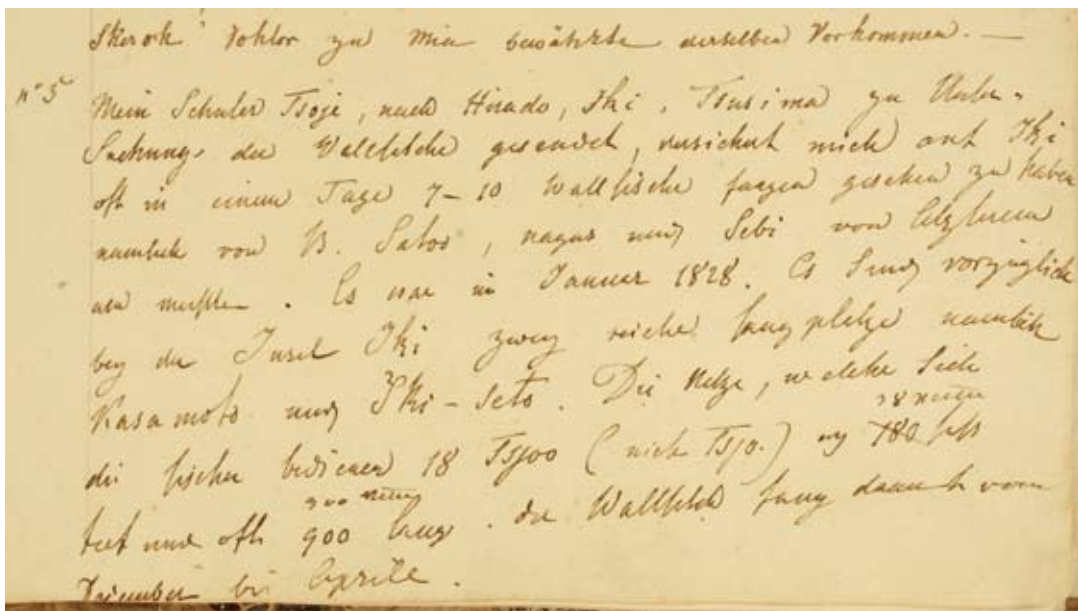 zu
derselben Vorkommen. —
n° 5
Mein Schuler Tsoje, nach Hirado, Iki, Tsusima zu Unter-
suchung der Wallfische gesendet, versichert mich auf Iki
oft in einem Tage 7–10 Wallfische fangen gesehen zu haben
namlich von B. Satoo, nagas und Sebi von letzterem
am meisten. Es war im Januar 1828. Es sind vorzüglich
bey der Insel Iki zwey reiche fangpletze namlich
Kasamoto und Iki-Seto. Die Netze, welche sich
28
die fischer bedienen 18 Tsjoo (nich Tsjo.) 180 fuss
300
tief und oft 900 lang. der Wallfisch fang dauert vom
December bis Aprile.